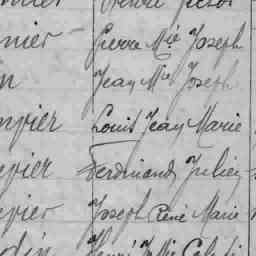 nier Pierre Mie Joseph
n Jean Mie Joseph
npier Louis Jean Marie
epier Ferdinand Julien
epier Joseph René Marie
din Henri